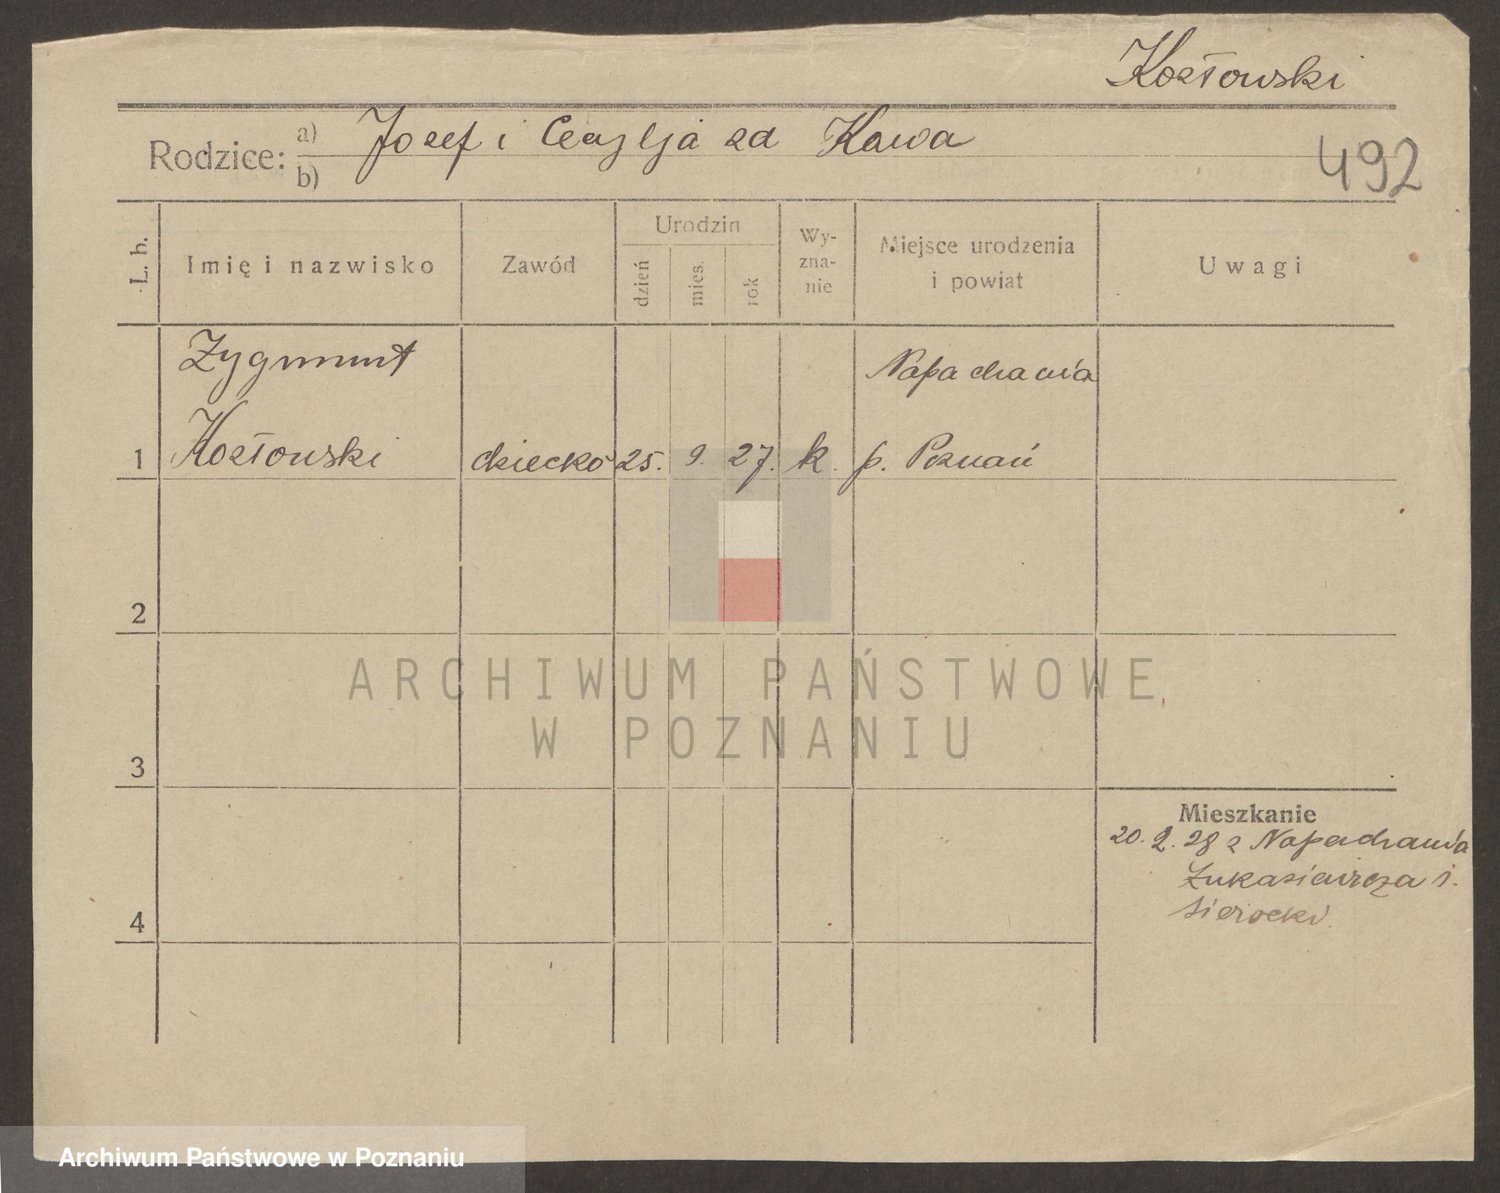 Kozłowski
Rodzice: a) b) Jozef i Cecylja zd Kawa
492
L. b.
Imię i nazwisko
Zawód
Urodzin
dzień
mies.
rok
Wy-
zna-
nie
Miejsce urodzenia
i powiat
Uwagi
Zygmunt
Napachania
1 Kozłowski dziecko 25. 9. 27. k. p. Poznań
2
ARCHIWUM PAŃSTWOWE
W POZNANIU
3
Mieszkanie
20. 2. 28 z Napachania
Łukasiewicza 1.
Sierocki
4
Archiwum Państwowe w Poznaniu